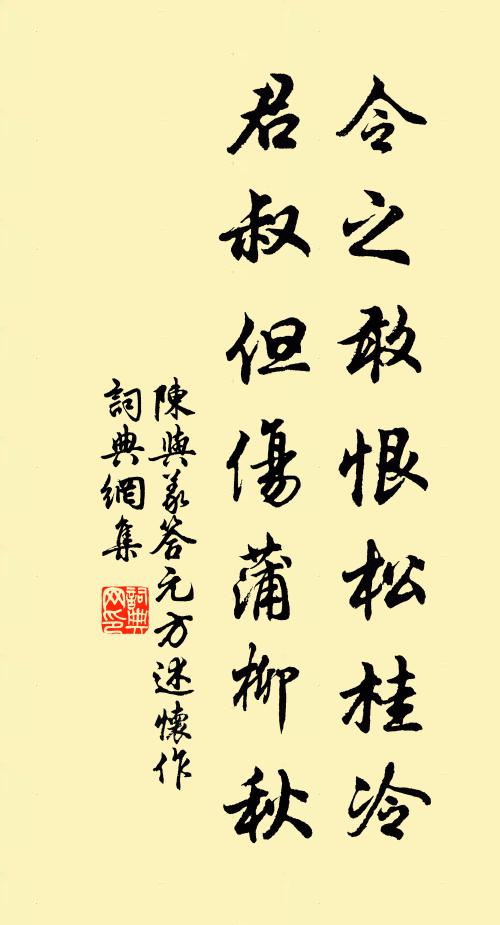 令之敢恨松桂冷
君叔但傷蒲柳秋
陳與義答元方述懷作
詞典網集
詞典网印